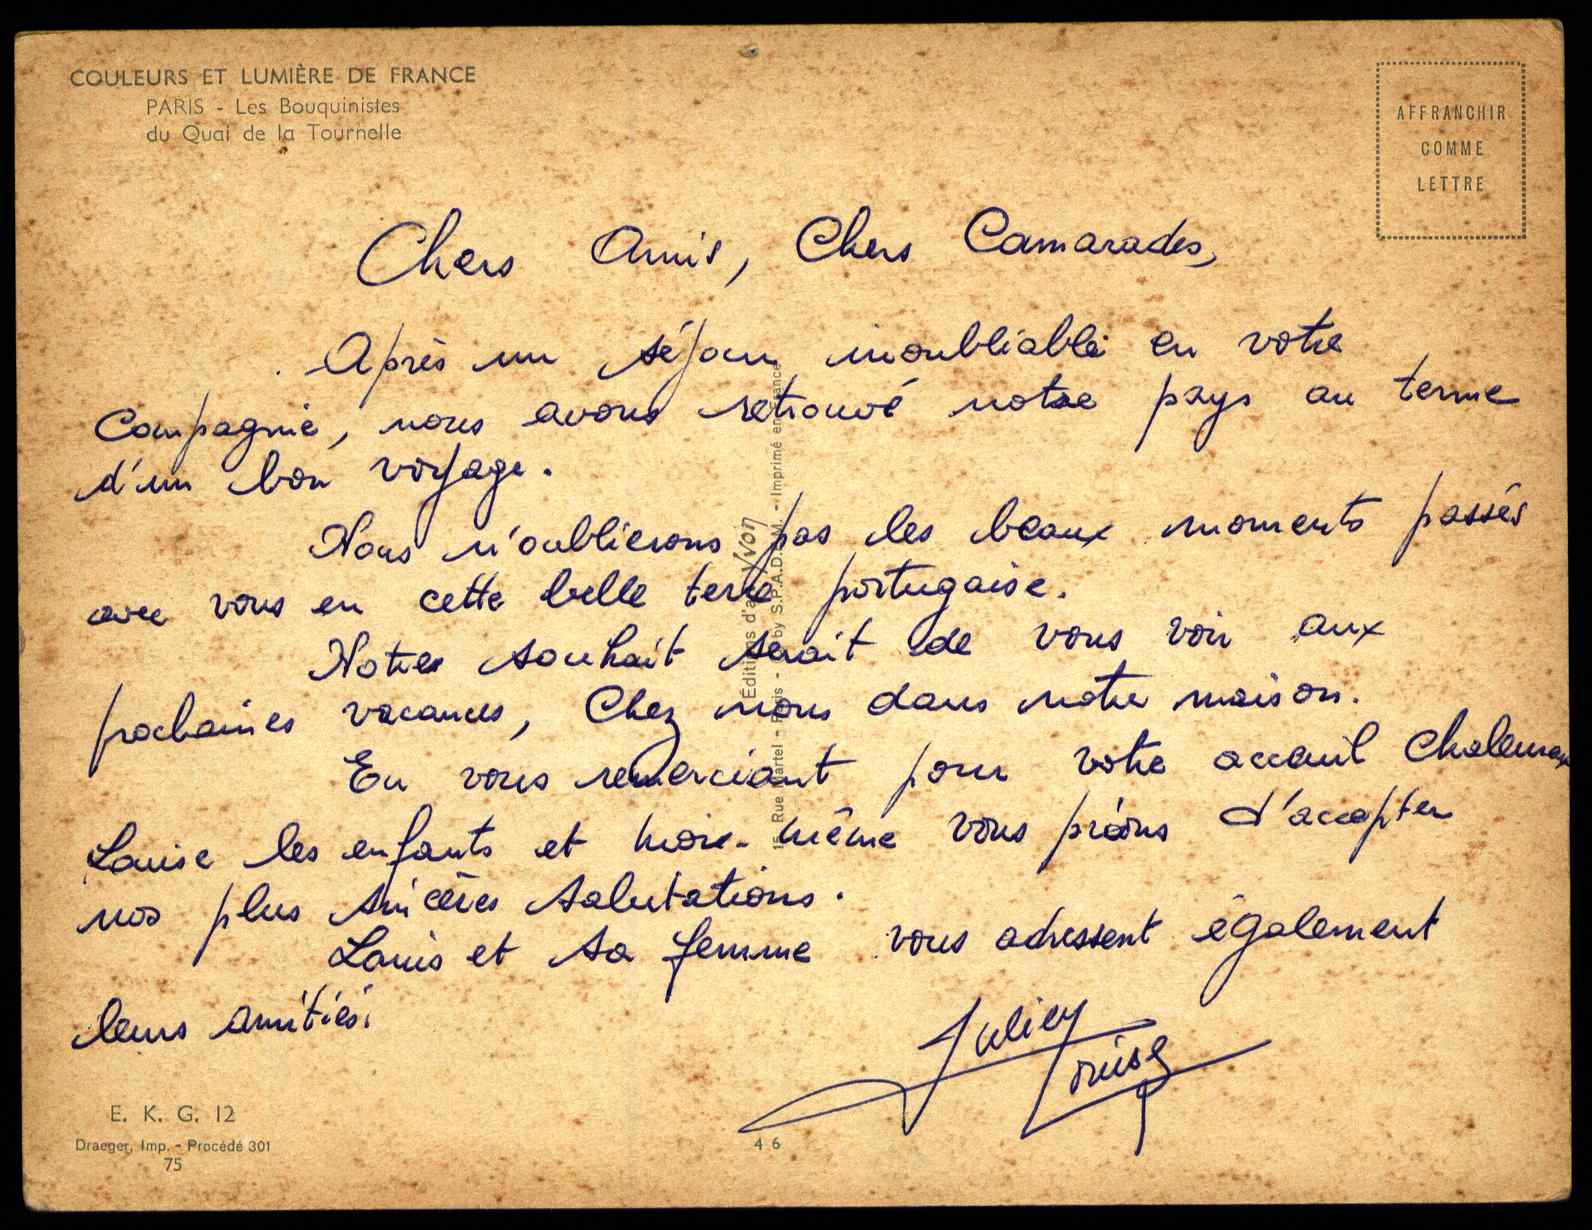 COULEURS ET LUMIÈRE DE FRANCE
PARIS - Les Bouquinistes
du Quai de la Tournelle
AFFRANCHIR
COMME
LETTRE
Chers Amis, Chers Camarades,
Après un séjour inoubliable en votre
Compagnie, nous avons retrouvé notre pays au terme
d'un bon voyage.
Nous n'oublierons pas les beaux moments passés
avec vous en cette belle terre portugaise.
Notre souhait serait de vous voir aux
prochaines vacances, Chez nous dans notre maison.
En vous remerciant pour votre accueil
Louise les enfants et moi-même vous prions d'accepter
nos plus sincères salutations.
Louis et sa femme vous adressent également
leurs amitiés.
Julien
Louise
Éditions d'art Yvon
15, Rue Martel - Paris - by S.P.A.D.E.M. - Imprimé en France
E. K. G. 12
Draeger, Imp. - Procédé 301
75
46